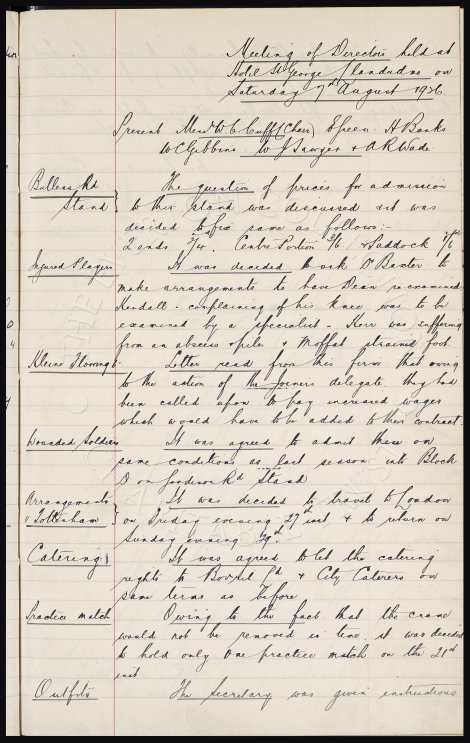 Meeting of Directors held at
Hotel St George Llandudno on
Saturday 7th August 1926.
Present Messrs W.C. Cuff (Chair) E Green. A Banks
W C Gibbins. W J Sawyer & A R Wade
Bullens Rd Stand
The question of prices for admission
to this stand was discussed & it was
decided to fix same as follows:-
2 ends 2/4. Centre Portion 3/6 & Paddock 1/6
Injured Players
It was decided to ask Dr Baxter to
make arrangements to have Dean re-examined
Kendall - complaining of his knee was to be
examined by a specialist - Kerr was suffering
from an abscess & piles & Moffat strained foot.
Kleine Flooring Co
Letter read from this firm that owing
to the action of the joiners delegate they had
been called upon to pay increased wages
which would have to be added to their contract.
Wounded Soldiers
It was agreed to admit these on
same conditions as last season into Block
D on Goodison Rd Stand
Arrangements v Tottenham
It was decided to travel to London
on Friday evening 27th inst & to return on
Sunday evening 29th.
Catering
It was agreed to let the catering
rights to Ld & City Caterers on
same terms as before
Practice match
Owing to the fact that the crane
would not be removed in time it was decided
to hold only one practice match on the 21st
inst
Outfits
The Secretary was given instructions